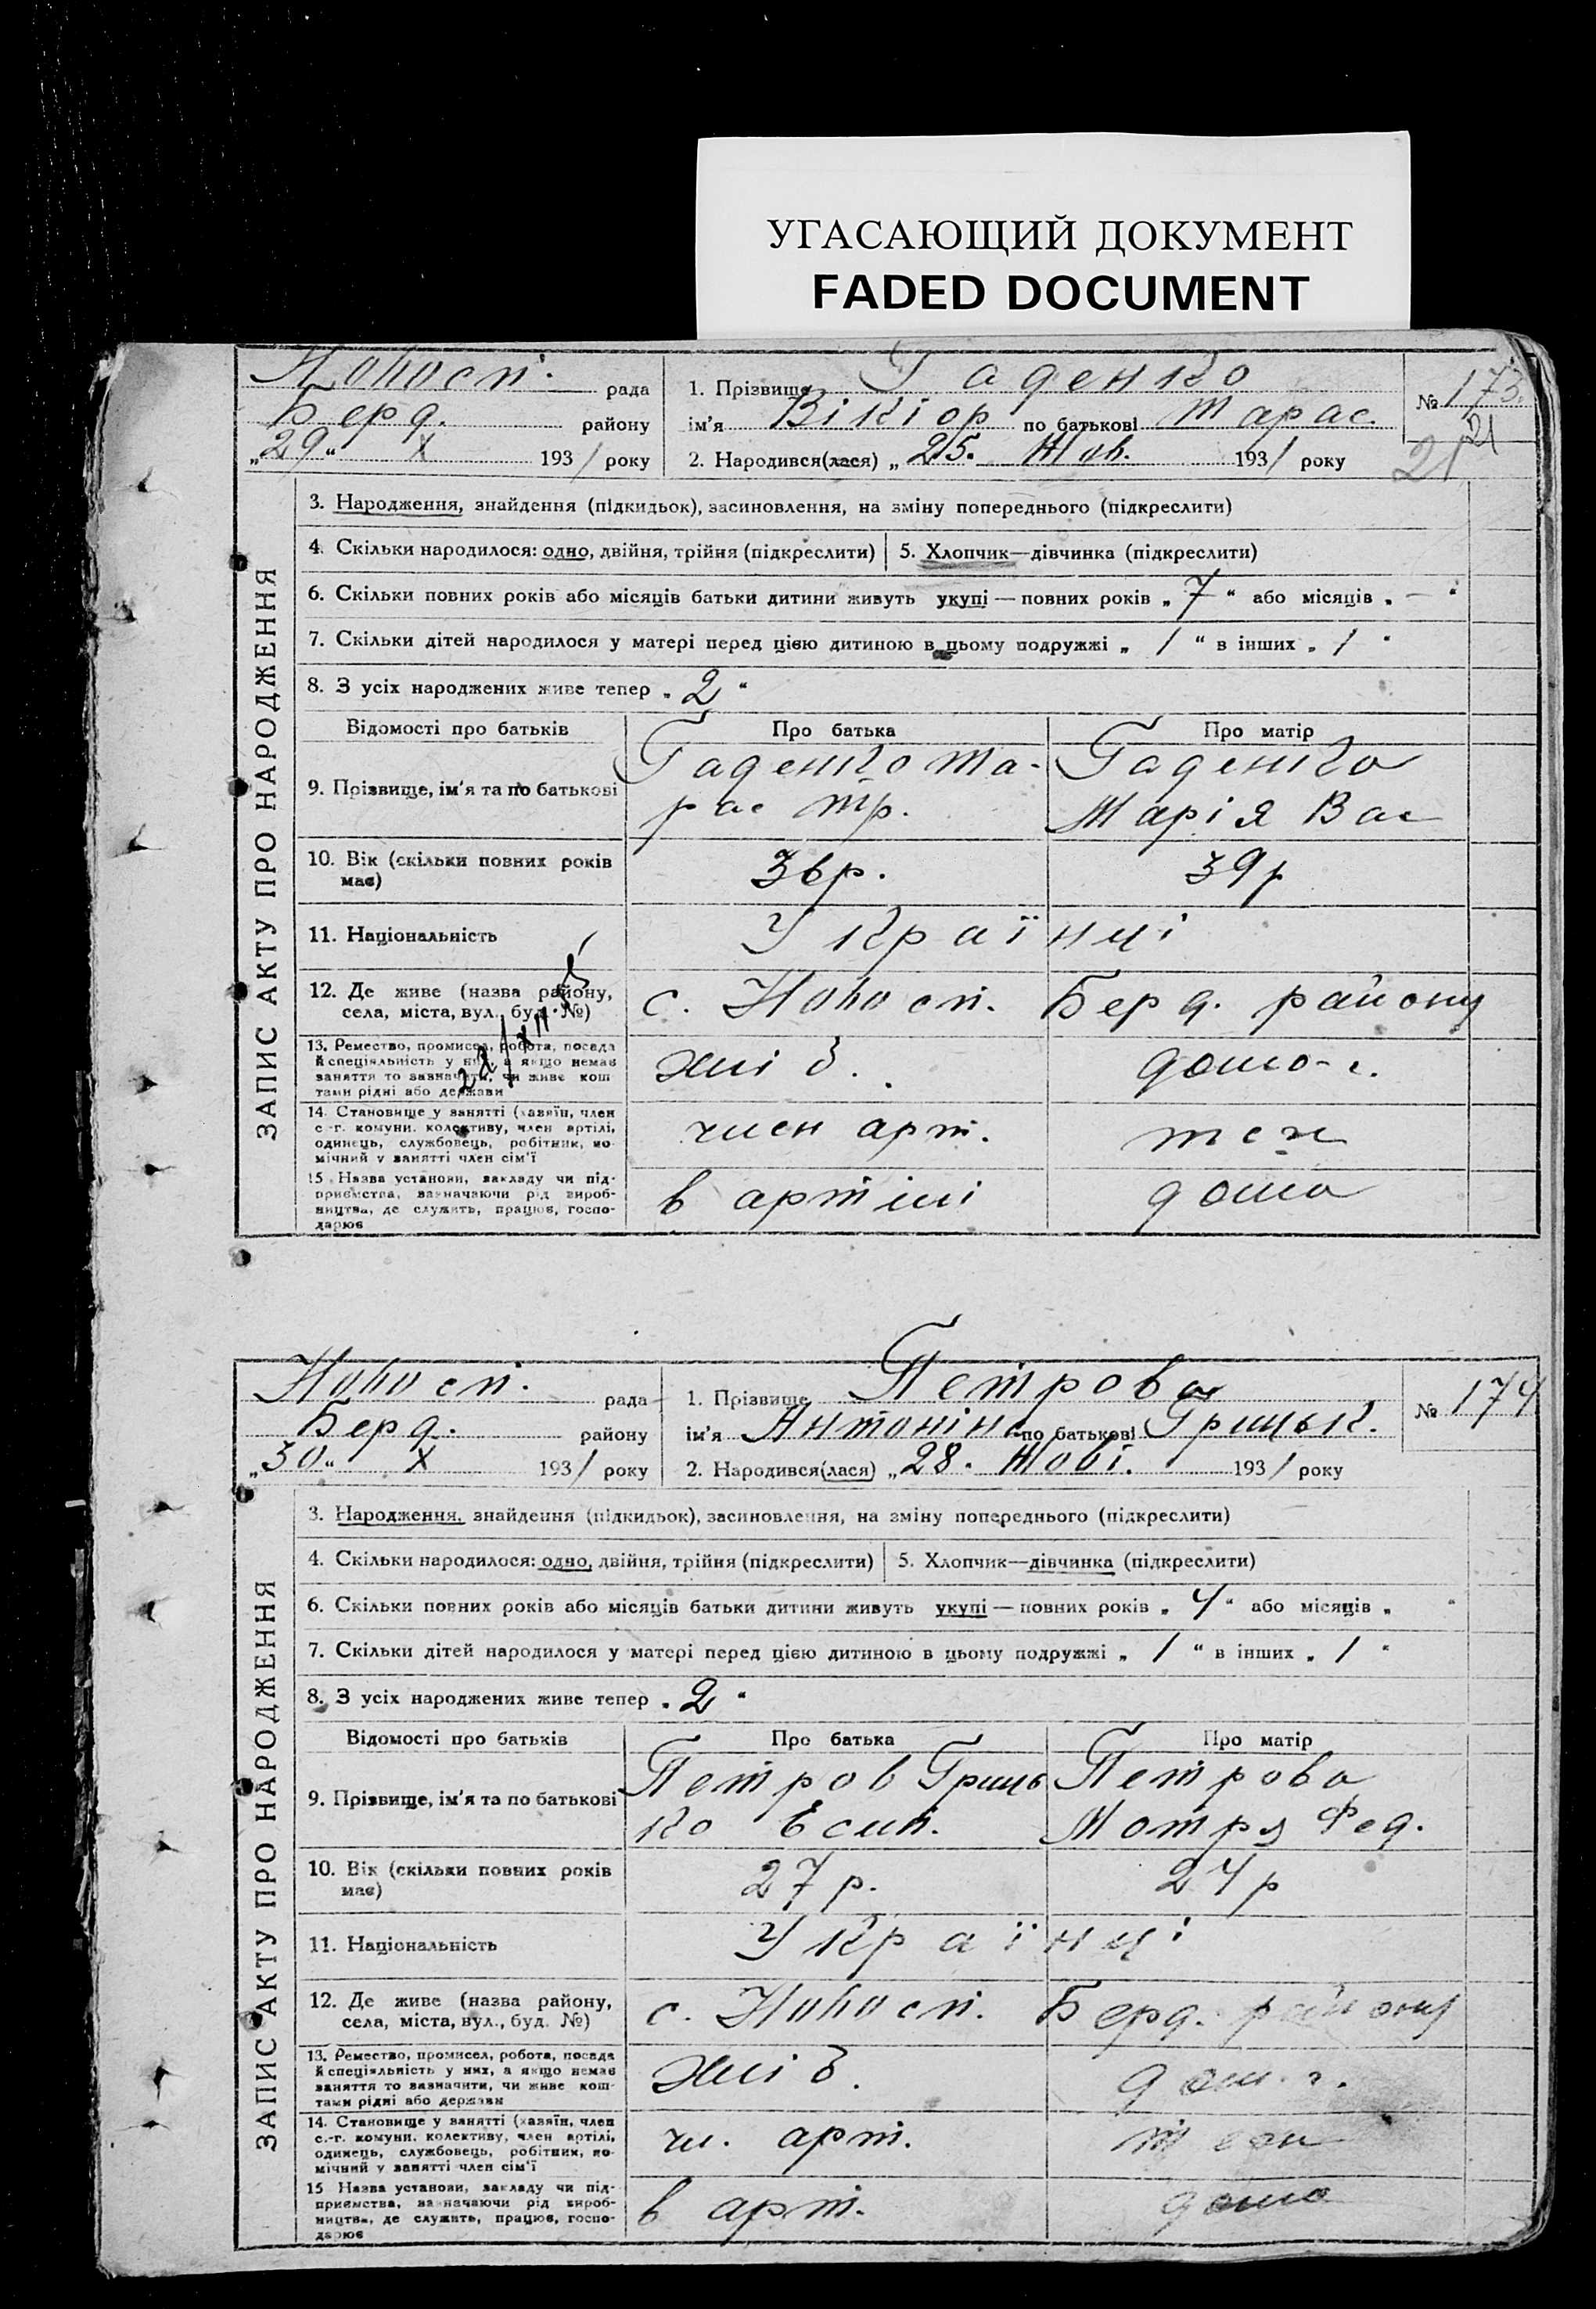 УГАСАЮЩИЙ ДОКУМЕНТ
FADED DOCUMENT
Новосп. рада
Берд. району
„29“ X 1931 року
1. Прізвище Гаденко
ім'я Віктор по батькові Тарас.
2. Народився(лася) „25. Жов. 1931 року
№ 173.
21
21
ЗАПИС АКТУ ПРО НАРОДЖЕННЯ
3. Народження, знайдення (підкидьок), засиновлення, на зміну попереднього (підкреслити)
4. Скільки народилося: одно, двійня, трійня (підкреслити)
5. Хлопчик—дівчинка (підкреслити)
6. Скільки повних років або місяців батьки дитини живуть укупі — повних років „7“ або місяців „—“
7. Скільки дітей народилося у матері перед цією дитиною в цьому подружжі „1“ в інших „1“
8. З усіх народжених живе тепер „2“
Відомості про батьків Про батька Про матір
9. Прізвище, ім'я та по батькові
Гаденко Та-
рас Тр.
Гаденко
Марія Вас
10. Вік (скільки повних років
має)
36р. 39р
11. Національність Українці
12. Де живе (назва району,
села, міста, вул., буд. №)
с. Новосп. Берд. району
13. Ремество, промисел, робота, посада
й спеціяльність у них, а якщо немає
заняття то зазначити, чи живе кош
тами рідні або держави
хліб. домо-г.
14. Становище у занятті (хазяїн, член
с.-г. комуни, колективу, член артілі,
одинець, службовець, робітник, по-
мічний у занятті член сім'ї
член арт. теж
15. Назва установи, закладу чи під-
приємства, зазначаючи рід вироб-
ництва, де служить, працює, госпо-
дарює
в артілі дома
Новосп. рада
Берд. району
„30“ X 1931 року
1. Прізвище Петрова
ім'я Антоніна по батькові Грицьк.
2. Народився(лася) „28. Жовт. 1931 року
№ 174
ЗАПИС АКТУ ПРО НАРОДЖЕННЯ
3. Народження, знайдення (підкидьок), засиновлення, на зміну попереднього (підкреслити)
4. Скільки народилося: одно, двійня, трійня (підкреслити)
5. Хлопчик—дівчинка (підкреслити)
6. Скільки повних років або місяців батьки дитини живуть укупі — повних років „4“ або місяців „ “
7. Скільки дітей народилося у матері перед цією дитиною в цьому подружжі „1“ в інших „1“
8. З усіх народжених живе тепер „2“
Відомості про батьків Про батька Про матір
9. Прізвище, ім'я та по батькові
Петров Гриць
ко Есип.
Петрова
Мотря Фед.
10. Вік (скільки повних років
має)
27 р. 24р
11. Національність Українці
12. Де живе (назва району,
села, міста, вул., буд. №)
с. Новосп. Берд. району
13. Ремество, промисел, робота, посада
й спеціяльність у них, а якщо немає
заняття то зазначити, чи живе кош-
тами рідні або держави
хліб. дом. г.
14. Становище у занятті (хазяїн, член
с.-г. комуни, колективу, член артілі,
одинець, службовець, робітник, по-
мічний у занятті член сім'ї
чл. арт. теж
15 Назва установи, закладу чи під-
приємства, зазначаючи рід вироб-
ництва, де служить, працює, госпо-
дарює
в арт. дома